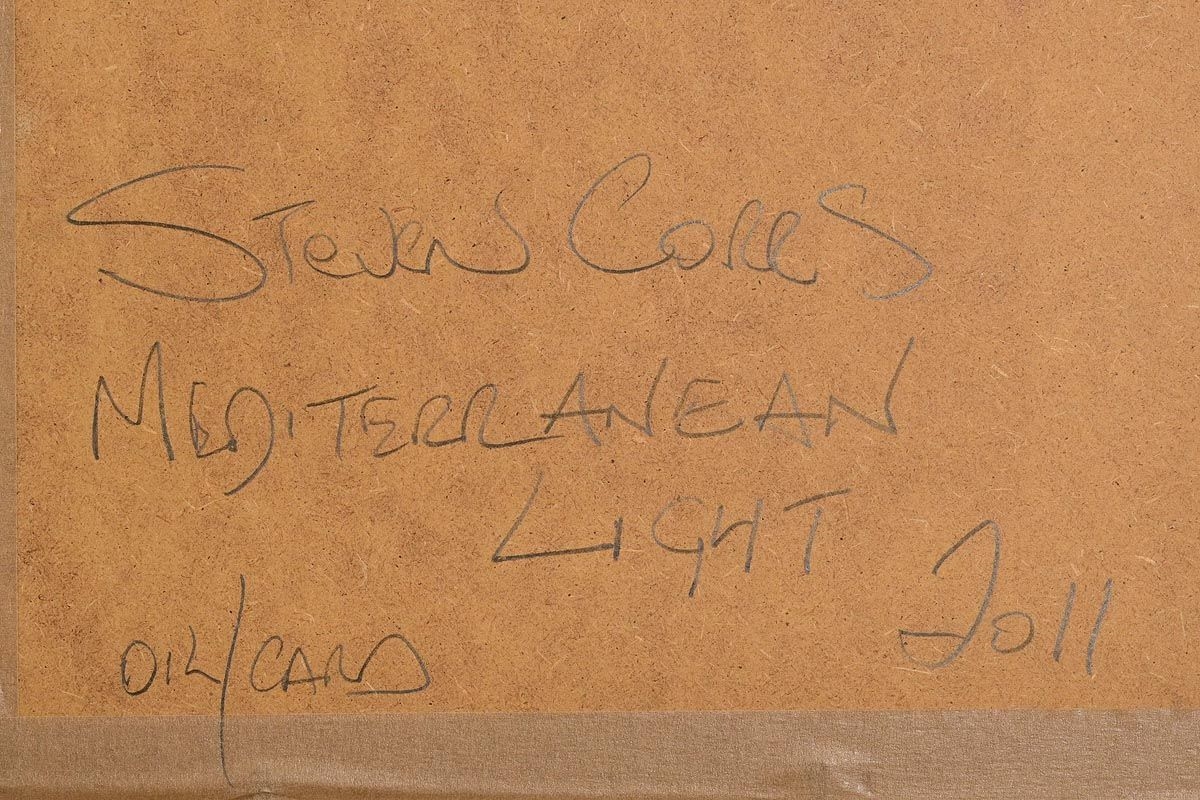 STEVEN
MEDITERRANEAN
LIGHT
2011
OIL/CARD